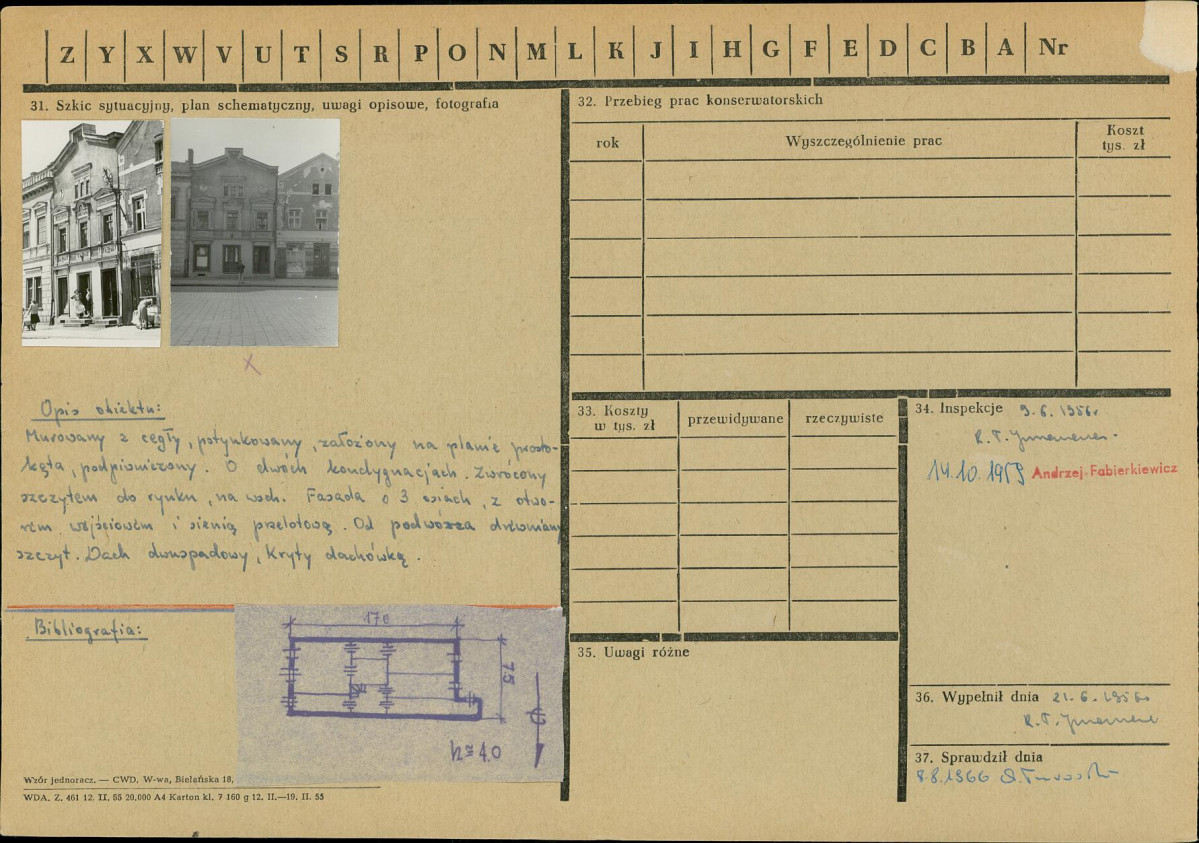 Z Y X W V U T S R P O N M L K J I H G F E D C B A Nr
31. Szkic sytuacyjny, plan schematyczny, uwagi opisowe, fotografia
Opis obiektu:
Murowany z cegły, potynkowany, założony na planie prosto-
kąta, podpiwniczony. O dwóch kondygnacjach. Zwrócony
szczytem do rynku, na wsch. Fasada o 3 osiach, z otwo-
rem wejściowym i sienią przelotową. Od podwórza drewniany
szczyt. Dach dwuspadowy, kryty dachówką.
Bibliografia:
170
7.5
h=4.0
Wzór jednoracz. — CWD, W-wa, Bielańska 18,
WDA. Z. 461 12. II. 55 20,000 A4 Karton kl. 7 160 g 12. II.—19. II. 55
32. Przebieg prac konserwatorskich
rok Wyszczególnienie prac Koszt
tys. zł
33. Koszty
w tys. zł
przewidywane rzeczywiste
34. Inspekcje 9.6.1956r
14.10.1959 Andrzej-Fabierkiewicz
35. Uwagi różne
36. Wypełnił dnia 21.6.1956
37. Sprawdził dnia
8.8.1966